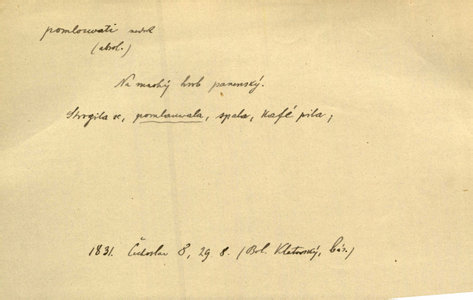 pomlouvati nedok
(absol.)
Na mnohý hrob panenský.
Strojila se, pomlauwala, spala, kafé pila;
1831. Čechoslav 8, 29 8. (Bol. Klatovský, bás.)